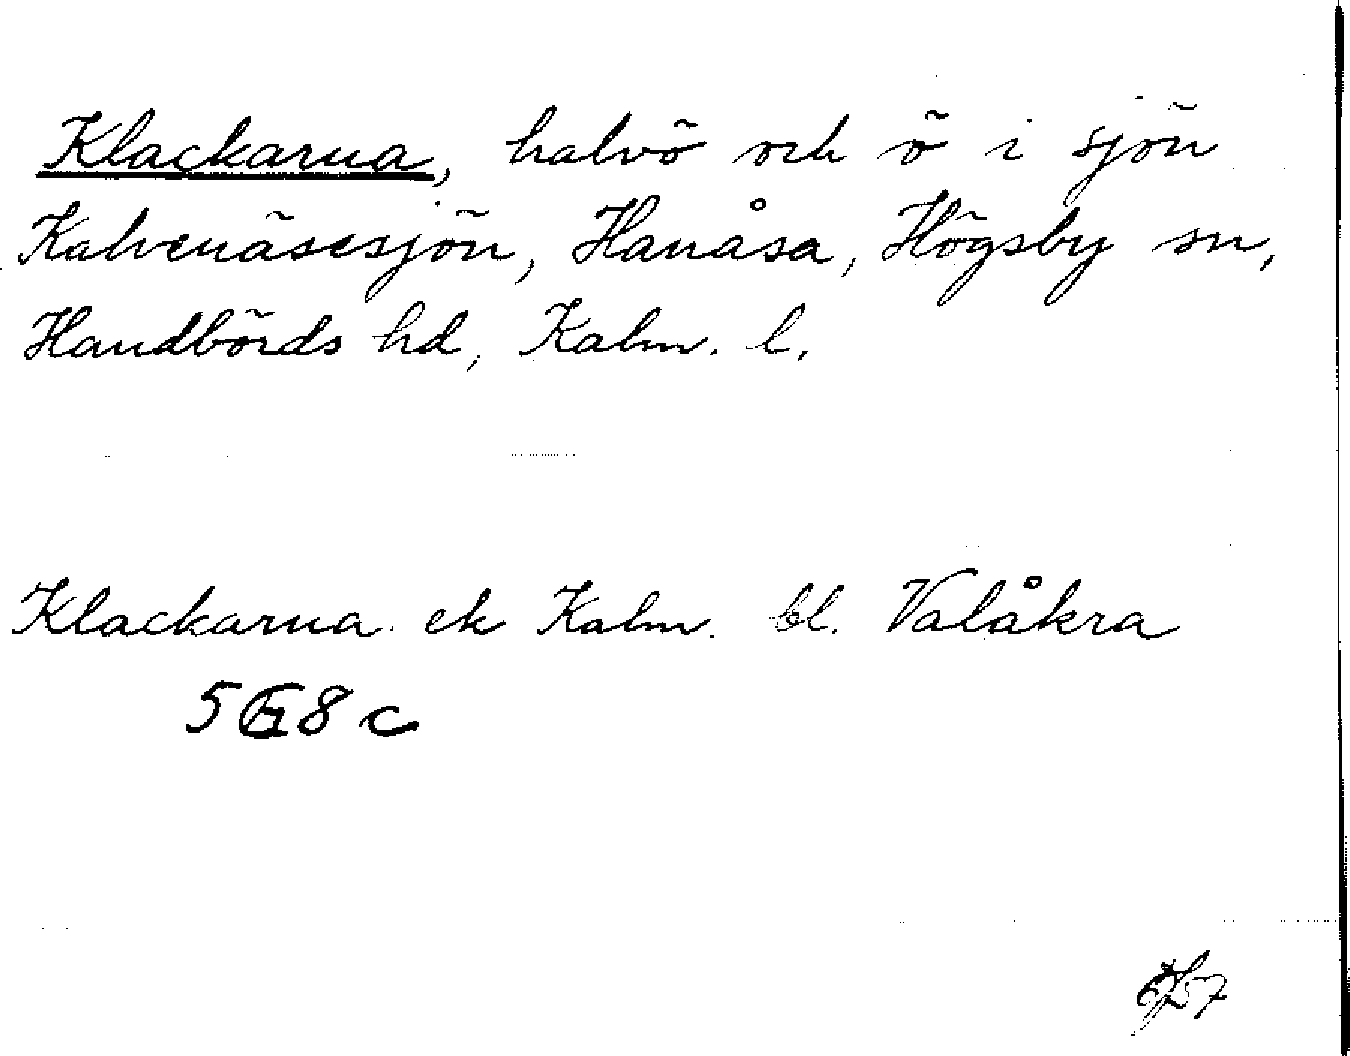 Klackarna, halvö och ö i sjön
Kalvenäsesjön, Hanåsa, Högsby sn,
Handbörds hd, Kalm. l.
Klackarna ek Kalm. bl. Valåkra
5G8c